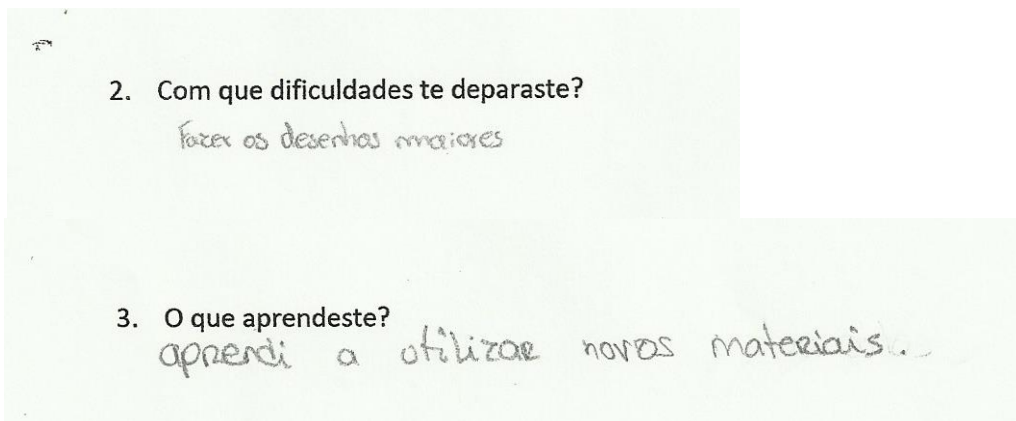 2. Com que dificuldades te deparaste?
Fazer os desenhos maiores
3. O que aprendeste?
aprendi a utilizar novos materiais.